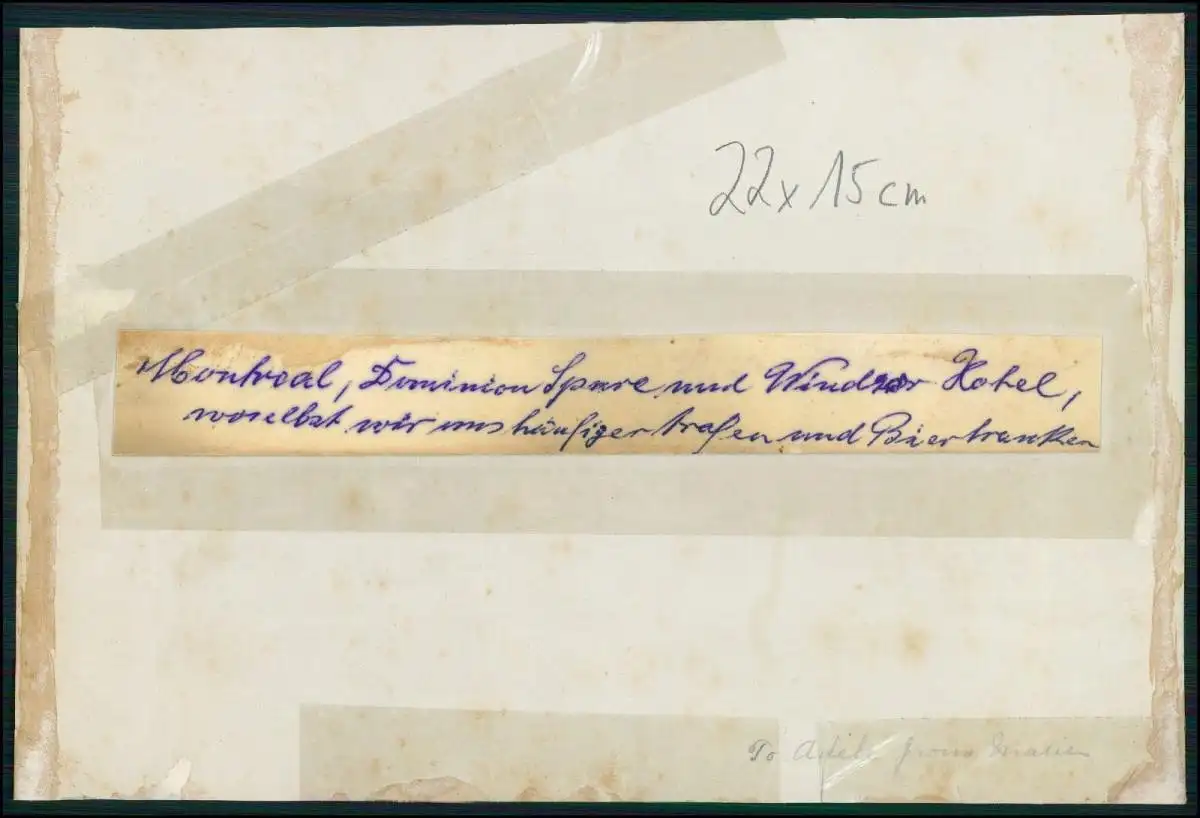 22 x 15 cm
Montreal, Dominion Square und Windsor Hotel,
woselbst wir uns häufiger trafen und Bier tranken
To from